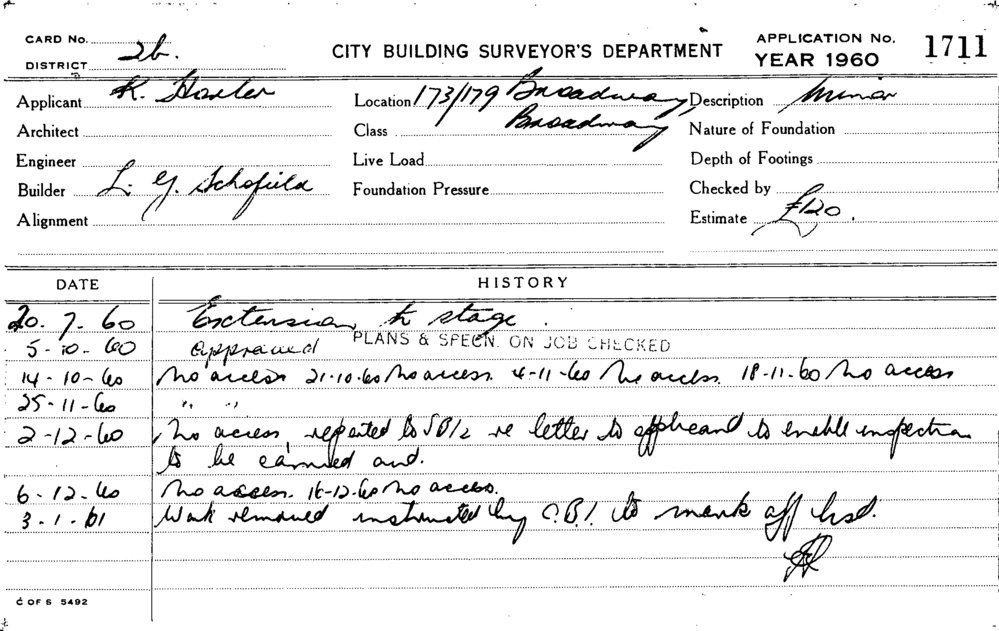 CARD No. 2b.
DISTRICT
CITY BUILDING SURVEYOR'S DEPARTMENT
APPLICATION No. 1711
YEAR 1960
Applicant K. Location 173/179 Broadway Description Minor
Architect Class Broadway Nature of Foundation
Engineer Live Load Depth of Footings
Builder L. G. Schofield Foundation Pressure Checked by
Alignment Estimate £120.
DATE HISTORY
20. 7. 60 Extension to stage.
5-10-60 approved PLANS & SPECN. ON JOB CHECKED
14-10-60 No access 21-10-60 No access. 4-11-60 No access. 18-11-60 No access
25-11-60 " "
2-12-60 No access, reported to re letter to applicant to enable inspection
to be carried out.
6-12-60 No access. 16-12-60 No access.
3-1-61 Work removed instructed by C.B.I. to mark off list.
C OF S 5492